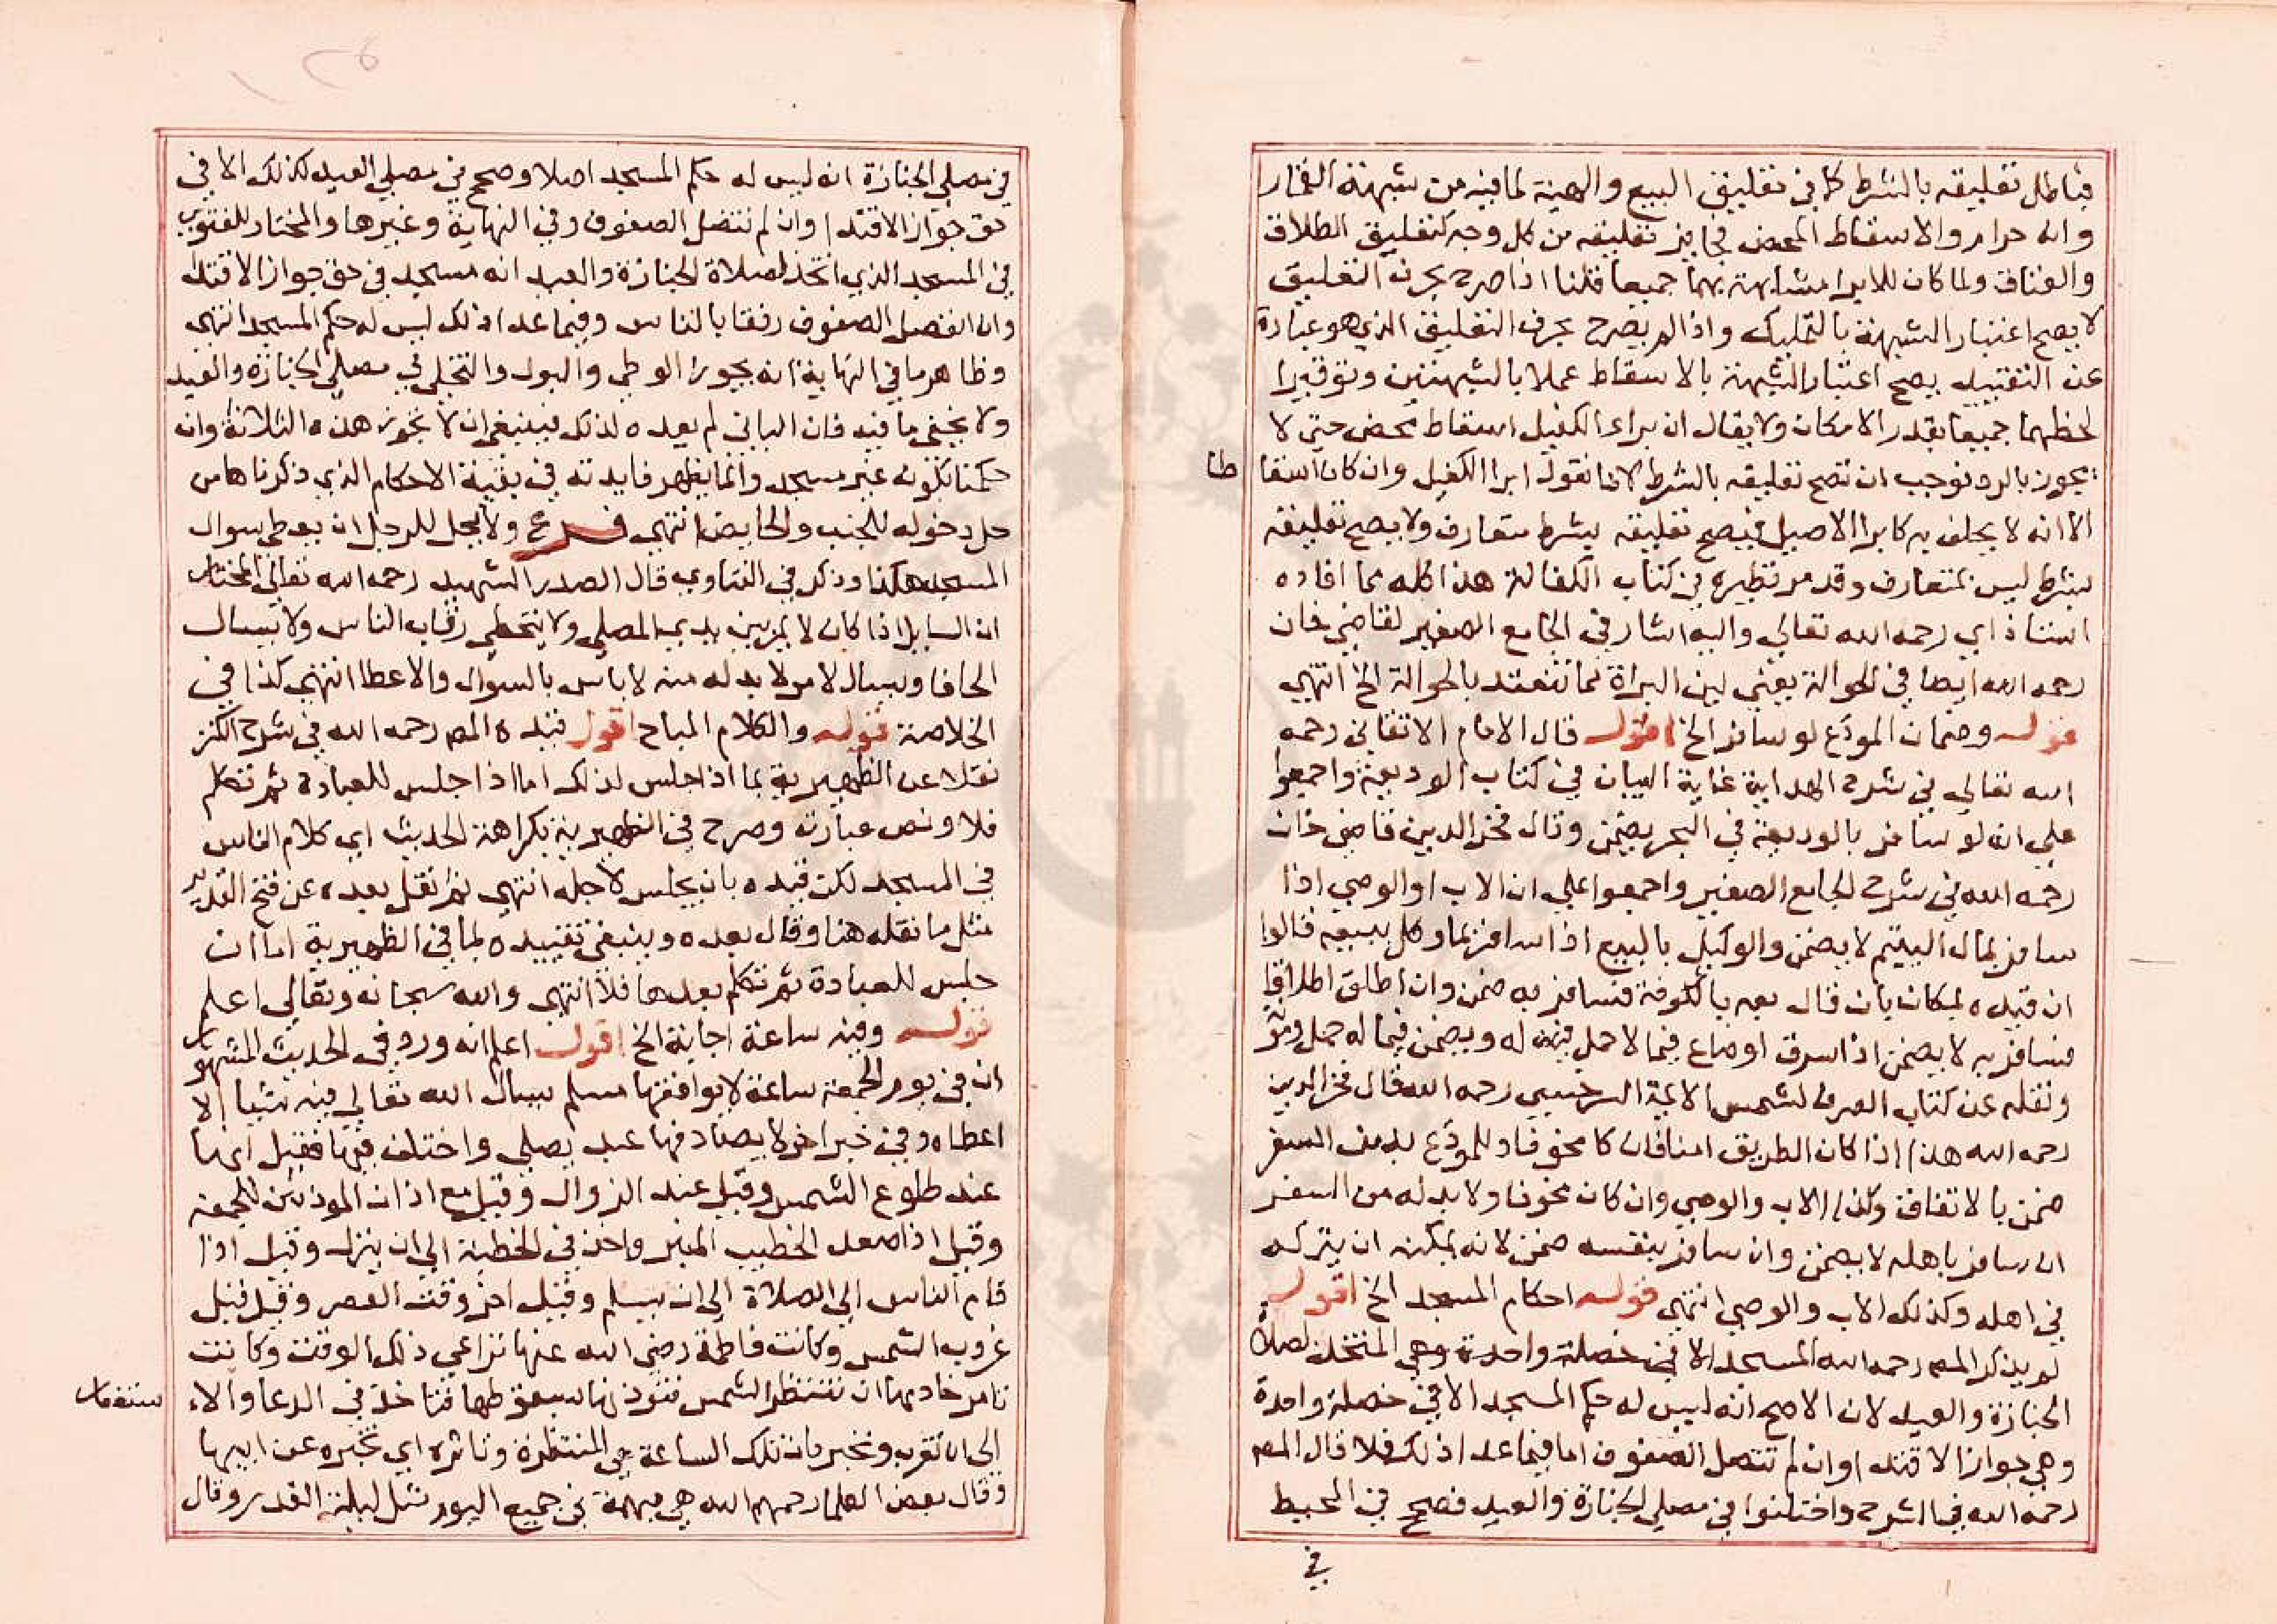 فباطل تعليقه بالشرط كما في تعليق البيع والهبة لما فيه من شبهة القمار
وانه حرام والاسقاط المحض فجايز تعليقه من كل وجه كتعليق الطلاق
والعتاق ولما كان للابرا مشابهة بهما جميعا قلنا اذا صرح بحرف التعليق
لا يصح اعتبار الشبهة بالتمليك واذا لم يصرح بحرف التعليق الذي هو عبارة
عن التقييد يصح اعتبار الشبهة بالاسقاط عملا بالشبهتين وتوفيرا
لحظهما جميعا بقدر الامكان ولا يقال ان براءا الكفيل اسقاط محض حتى لا
يجوز بالرد فوجب ان تصح تعليقه بالشرط لانا نقول ابرا الكفيل وان كان اسقا
طا
الا انه لا يحلف به كابرا الاصيل فيصح تعليقه بشرط متعارف ولا يصح تعليقه
بشرط ليس بمتعارف وقد مر نظيره في كتاب الكفالة هذا كله مما افاده
استاذي رحمه الله تعالى واليه اشار في الجامع الصغير لقاضي خان
رحمه الله ايضا في الحوالة يعني لين البراة لما تنعقد بالحوالة الخ انتهى
قوله وضمان المودع لو سافر الخ اقول قال الامام الاتقاني رحمه
الله تعالى في شرح الهداية غاية البيان في كتاب الوديعة واجمعوا
على انه لو سافر بالوديعة في البحر يضمن وقال فخر الدين قاضي خان
رحمه الله في شرح الجامع الصغير واجمعوا على ان الاب او الوصي اذا
سافر بمال اليتيم لا يضمن والوكيل بالبيع اذا سافر بما وكل ببيعه قالوا
ان قيده بمكان بان قال بعه بالكوفة فسافر به ضمن وان اطلق اطلاقا
فسافر به لا يضمن اذا سرق او ضاع فيما لا حمل له ويضمن فيما له حمل ومؤ
ونقله عن كتاب الصرف لشمس الائمة السرخسي رحمه الله قال فخر الدين
رحمه الله هذا اذا كان الطريق امنا فان كان مخوفا وللمودع بد من السفر
ضمن بالاتفاق وكذا الاب والوصي وان كان مخوفا ولا بد له من السفر
ان سافر باهله لا يضمن وان سافر بنفسه ضمن لانه يمكنه ان يتركه
في اهله وكذلك الاب والوصي انتهى قوله احكام المسجد الخ اقول
لم يذكر المص رحمه الله المسجد الا في خصلة واحدة وهي المتخذ لصلاة
الجنازة والعيد لان الاصح انه ليس له حكم المسجد الا في خصلة واحدة
وهي جواز الاقتدا وان لم تتصل الصفوف اما فيما عدا ذلك فلا قال المص
رحمه الله في الشرح واختلفوا في مصلى الجنازة والعيد فصحح في المحيط
في
في مصلى الجنازة انه ليس له حكم المسجد اصلا وصحح في مصلى العيد كذلك الا في
حق جواز الاقتدا وان لم تتصل الصفوف وفي النهاية وغيرها والمختار للفتوى
في المسجد الذي اتخذ لصلاة الجنازة والعيد انه مسجد في حق جواز الاقتدا
وان انفصل الصفوف رفقا بالناس وفيما عدا ذلك ليس له حكم المسجد انتهى
وظاهر ما في النهاية انه يجوز الوطي والبول والتخلي في مصلى الجنازة والعيد
ولا يخفى ما فيه فان الباني لم يعده لذلك فينبغي ان لا تجوز هذه الثلاثة وان
حكمنا بكونه غير مسجد وانما يظهر فايدته في بقية الاحكام الذي ذكرناها من
حل دخوله للجنب والحايض انتهى فرع ولا يحل للرجل ان يعطي سوال
المسجد هكذا وذكر في الفتاوى قال الصدر الشهيد رحمه الله تعالى المختار
ان السايل اذا كان لا يمر بين يدي المصلي ولا يتخطى رقاب الناس ولا يسال
الحافا ويسال لامر لا بد له منه لا باس بالسوال والاعطا انتهى كذا في
الخلاصة قوله والكلام المباح اقول قيده المص رحمه الله في شرح الكنز
نقلا عن الظهيرية بما اذا جلس لذلك اما اذا جلس للعبادة ثم تكلم
فلا ونص عبارته وصرح في الظهيرية بكراهة الحديث اي كلام الناس
في المسجد لكن قيده بان يجلس لاجله انتهى ثم نقل بعده عن فتح القدير
مثل ما نقله هنا وقال بعده وينبغي تقييده بما في الظهيرية اما ان
جلس للعبادة ثم تكلم بعدها فلا انتهى والله سبحانه وتعالى اعلم
قوله وفيه ساعة اجابة الخ اقول اعلم انه ورد في الحديث المشهور
ان في يوم الجمعة ساعة لا يوافقها مسلم يسال الله تعالى فيه شيا الا
اعطاه وفي خبر اخر لا يصادفها عبد يصلي واختلف فيها فقيل انها
عند طلوع الشمس وقيل عند الزوال وقيل مع اذان الموذنين للجمعة
وقيل اذا صعد الخطيب المنبر واخذ في الخطبة الى ان ينزل وقيل اذا
قام الناس الى الصلاة الى ان يسلم وقيل اخر وقت العصر وقيل قبل
غروب الشمس وكانت فاطمة رضي الله عنها تراعي ذلك الوقت وكانت
تامر خادمها ان تنتظر الشمس فتوذنها بسقوطها فتاخذ في الدعا والا
ستغفار
الى ان تغرب وتخبر بان تلك الساعة هي المنتظرة وتاثره اي تخبره عن ابيها
وقال بعض العلما رحمهم الله هي مبهمة في جميع اليوم مثل ليلة القدر وقال